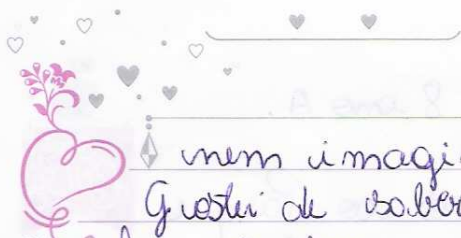 nem imagi
Gostei de saber